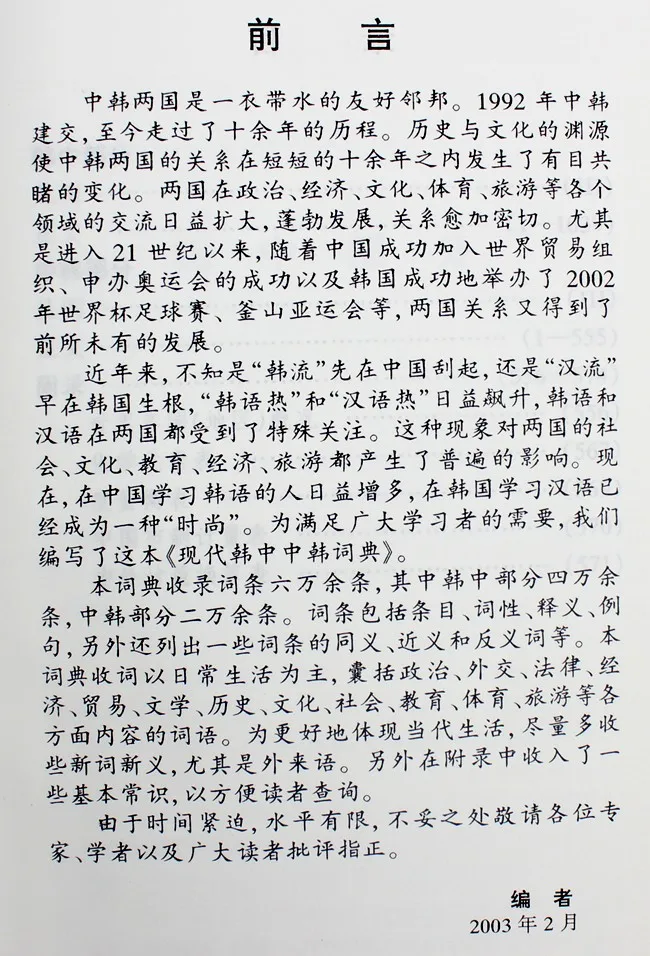 前 言
中韩两国是一衣带水的友好邻邦。1992 年中韩
建交，至今走过了十余年的历程。历史与文化的渊源
使中韩两国的关系在短短的十余年之内发生了有目共
睹的变化。两国在政治、经济、文化、体育、旅游等各个
领域的交流日益扩大，蓬勃发展，关系愈加密切。尤其
是进入 21 世纪以来，随着中国成功加入世界贸易组
织、申办奥运会的成功以及韩国成功地举办了 2002
年世界杯足球赛、釜山亚运会等，两国关系又得到了
前所未有的发展。
近年来，不知是“韩流”先在中国刮起，还是“汉流”
早在韩国生根，“韩语热”和“汉语热”日益飙升，韩语和
汉语在两国都受到了特殊关注。这种现象对两国的社
会、文化、教育、经济、旅游都产生了普遍的影响。现
在，在中国学习韩语的人日益增多，在韩国学习汉语已
经成为一种“时尚”。为满足广大学习者的需要，我们
编写了这本《现代韩中中韩词典》。
本词典收录词条六万余条，其中韩中部分四万余
条，中韩部分二万余条。词条包括条目、词性、释义、例
句，另外还列出一些词条的同义、近义和反义词等。本
词典收词以日常生活为主，囊括政治、外交、法律、经
济、贸易、文学、历史、文化、社会、教育、体育、旅游等各
方面内容的词语。为更好地体现当代生活，尽量多收
些新词新义，尤其是外来语。另外在附录中收入了一
些基本常识，以方便读者查询。
由于时间紧迫，水平有限，不妥之处敬请各位专
家、学者以及广大读者批评指正。
编 者
2003 年 2 月